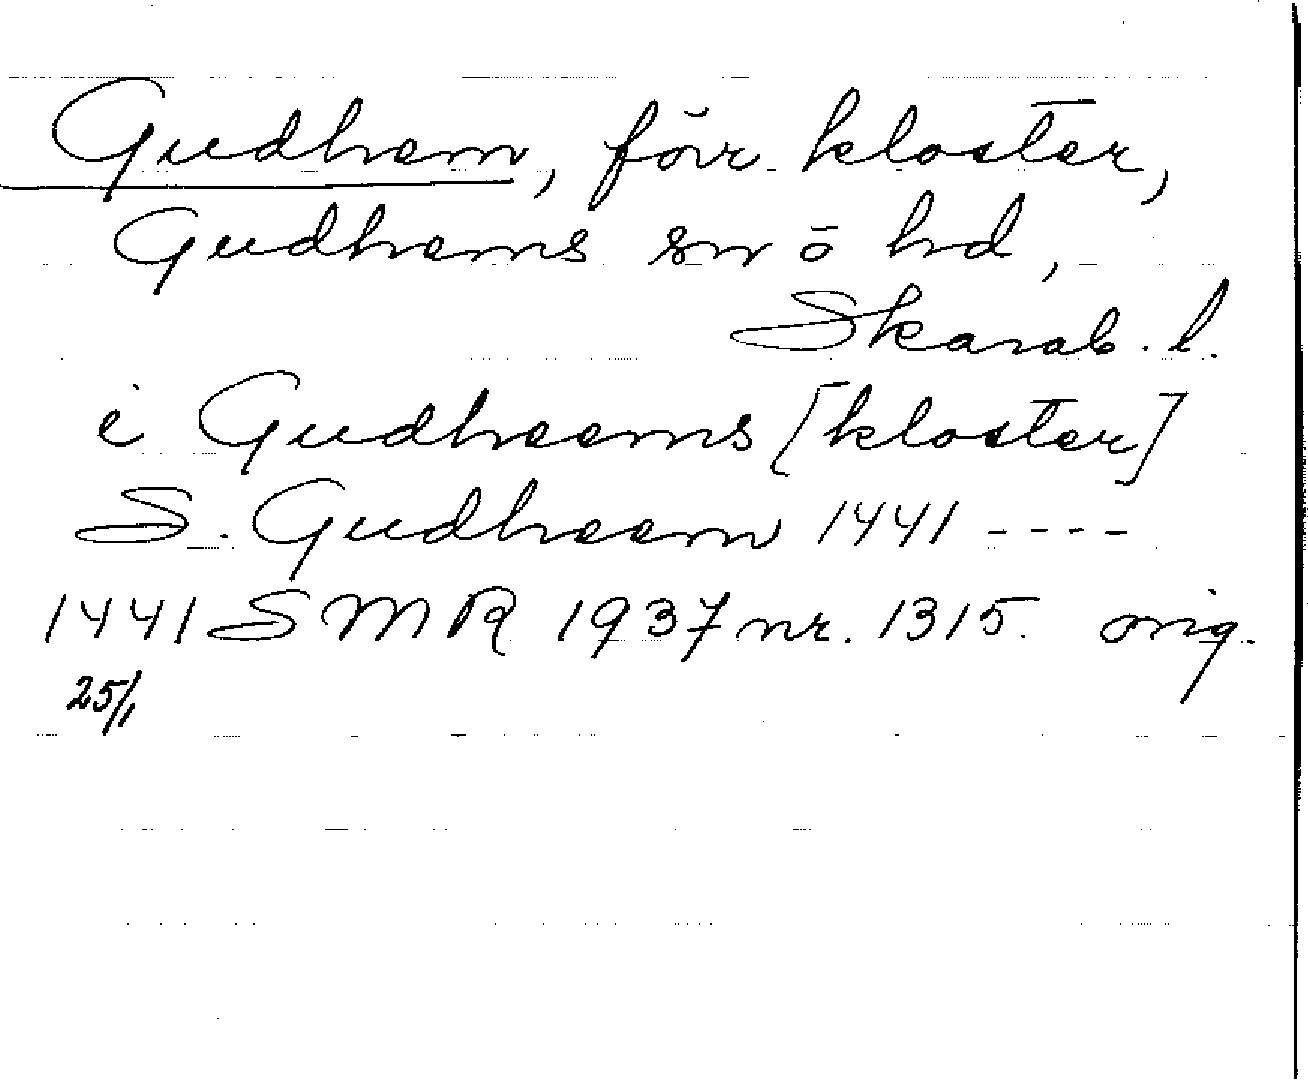 Gudhem, förr kloster,
Gudhems sn o hd,
Skarab. l.
i Gudheems [kloster]
S. Gudheem 1441 ----
1441 SMR 1937 nr. 1315. orig.
25/1